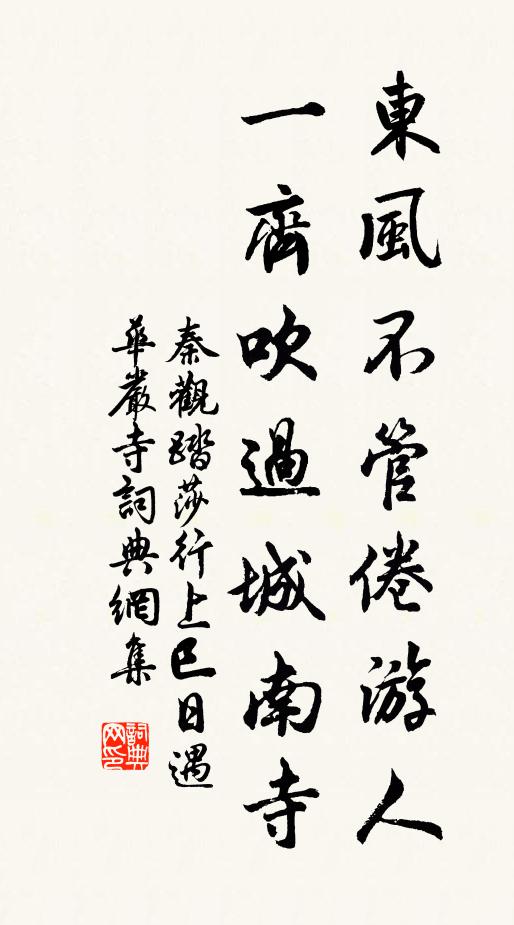 東風不管倦游人
一齊吹過城南寺
秦觀踏莎行上巳日遇
華嚴寺詞典網集
詞典
网印